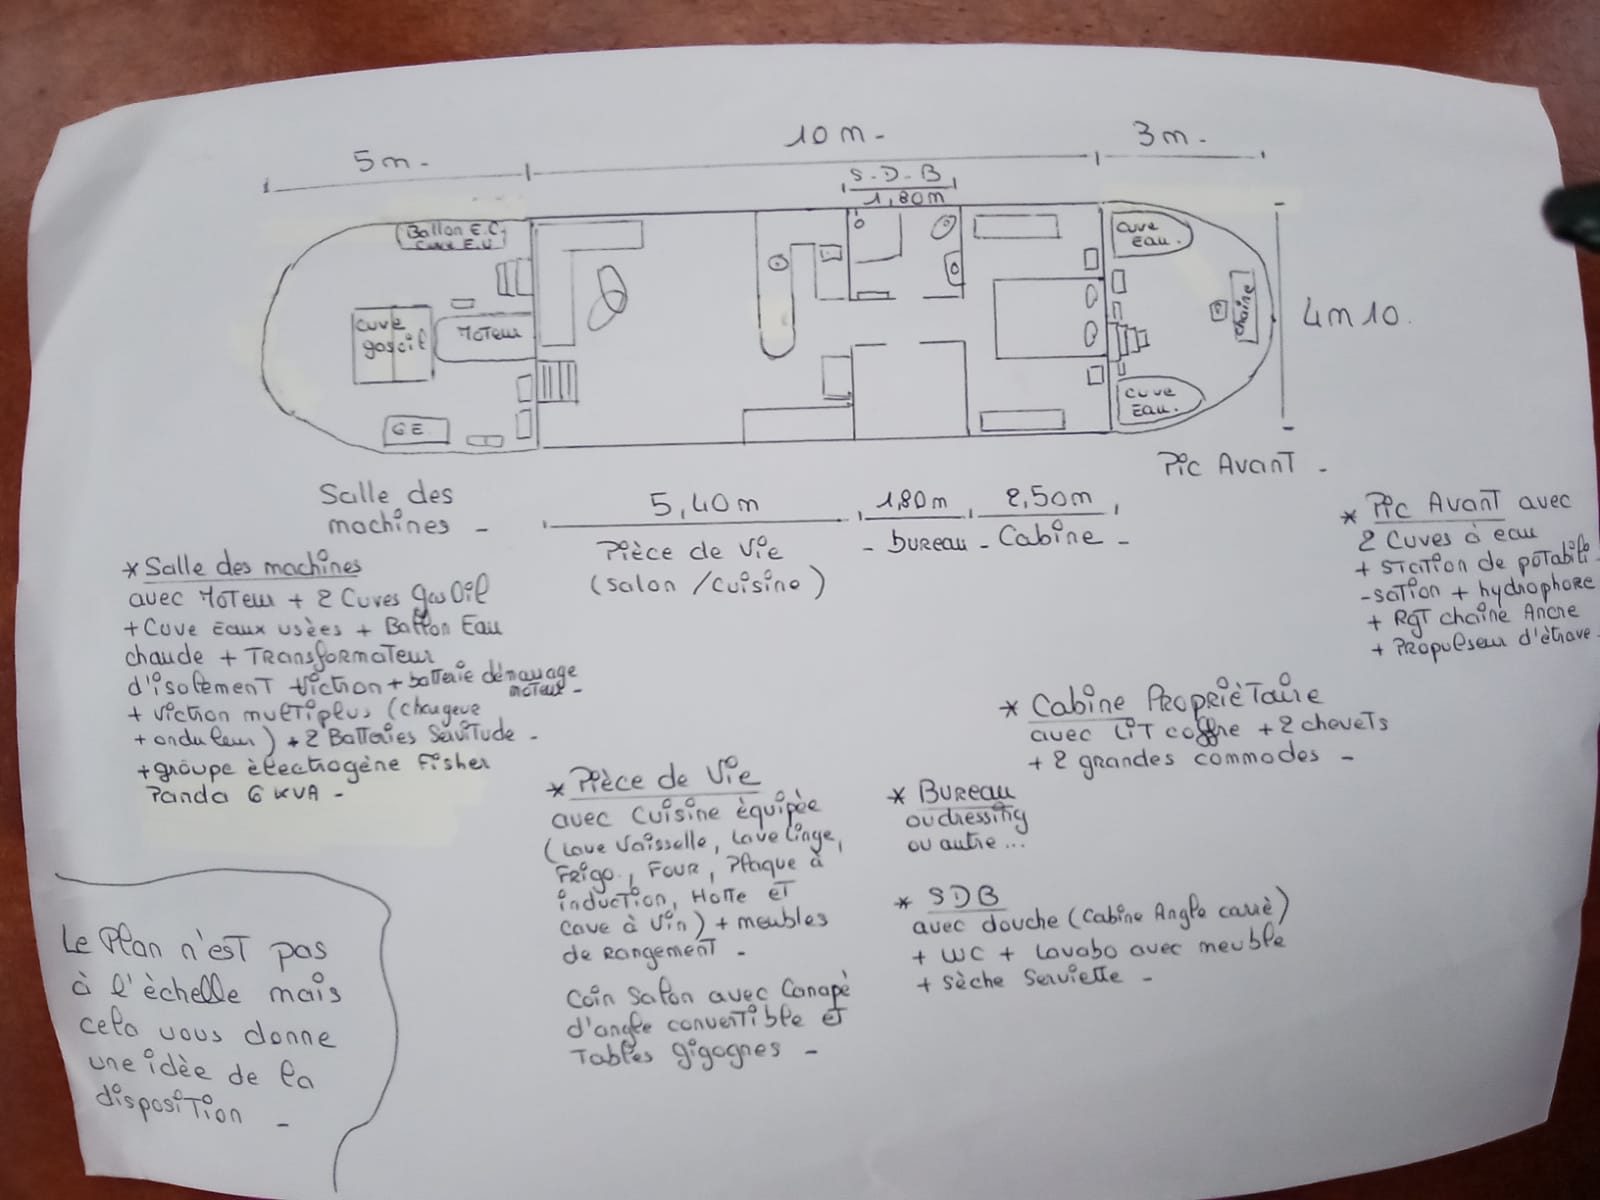 5m -
10 m -
3m -
S-D-B
1,80m
Ballon E.C.
Cuve E.U
cuve
gasoil
Moteur
GE
cuve
Eau.
chaîne
cuve
Eau.
4m10.
Salle des
machines -
Pic Avant -
5,40m
Pièce de Vie
(Salon / Cuisine)
1,80m
- bureau -
2,50m
Cabine -
* Salle des machines
avec Moteur + 2 Cuves gasoil
+ Cuve Eaux usées + Ballon Eau
chaude + Transformateur
d'isolement Viction + batterie démarrage
moteur -
+ Viction multiplus (chargeur
+ onduleur) + 2 Batteries Servitude -
+ groupe électrogène Fisher
Panda 6 KVA -
* Pic Avant avec
2 Cuves à eau
+ station de potabili
-sation + hydrophore
+ Rgt chaîne Ancre
+ Propulseur d'étrave -
* Cabine Propriètaire
avec lit coffre + 2 chevets
+ 2 grandes commodes -
* Pièce de Vie
avec Cuisine èquipèe
(Lave Vaisselle, Lave linge,
Frigo, Four, Plaque à
induction, Hotte et
Cave à Vin) + meubles
de rangement -
Coin Salon avec Canapè
d'angle convertible et
Tables gigognes -
* Bureau
ou dressing
ou autre...
* SDB
avec douche (Cabine Angle carrè)
+ WC + Lavabo avec meuble
+ sèche Serviette -
Le Plan n'est pas
à l'èchelle mais
cela vous donne
une idèe de la
disposition -